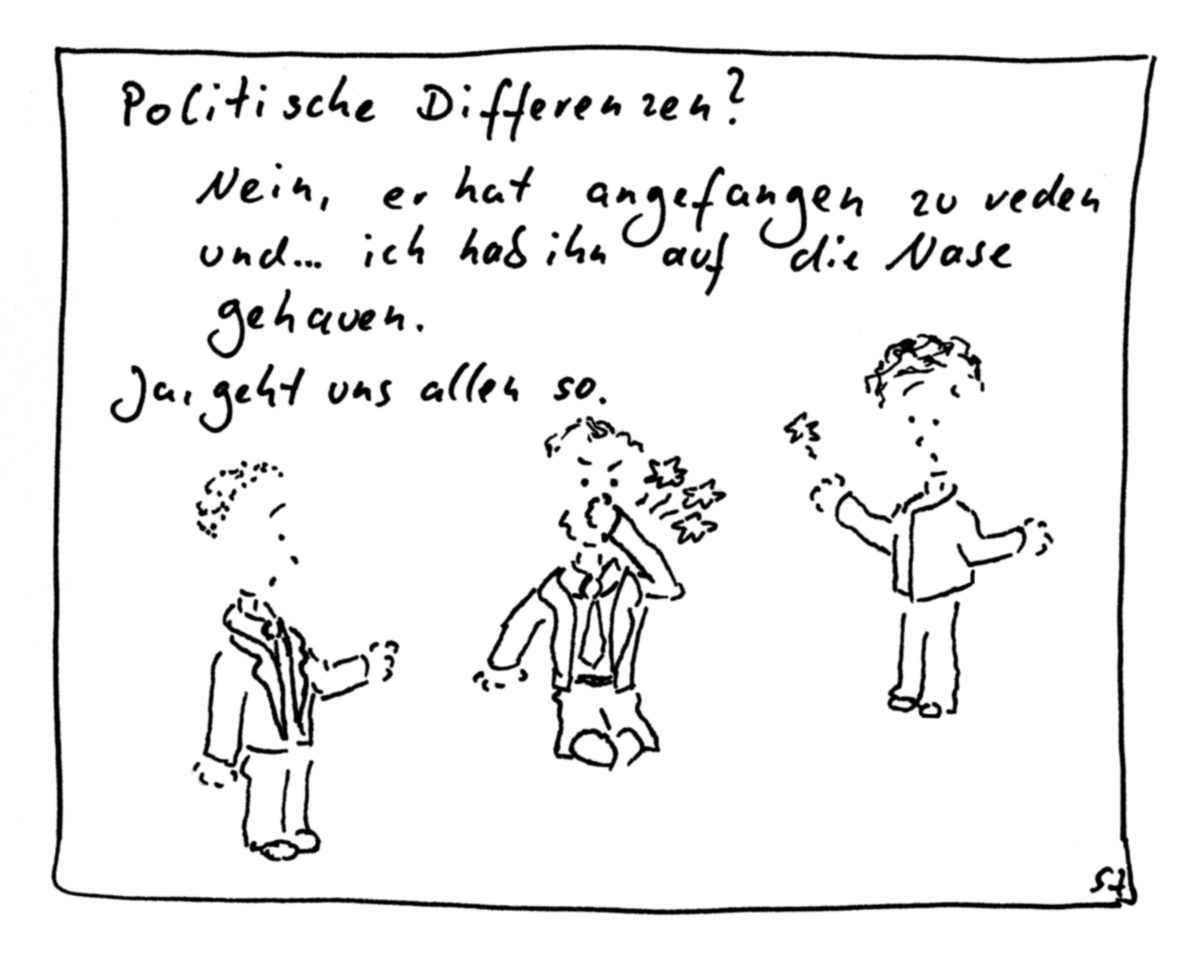 Politische Differenzen?
Nein, er hat angefangen zu reden
und... ich hab ihn auf die Nase
gehauen.
Ja, geht uns allen so.